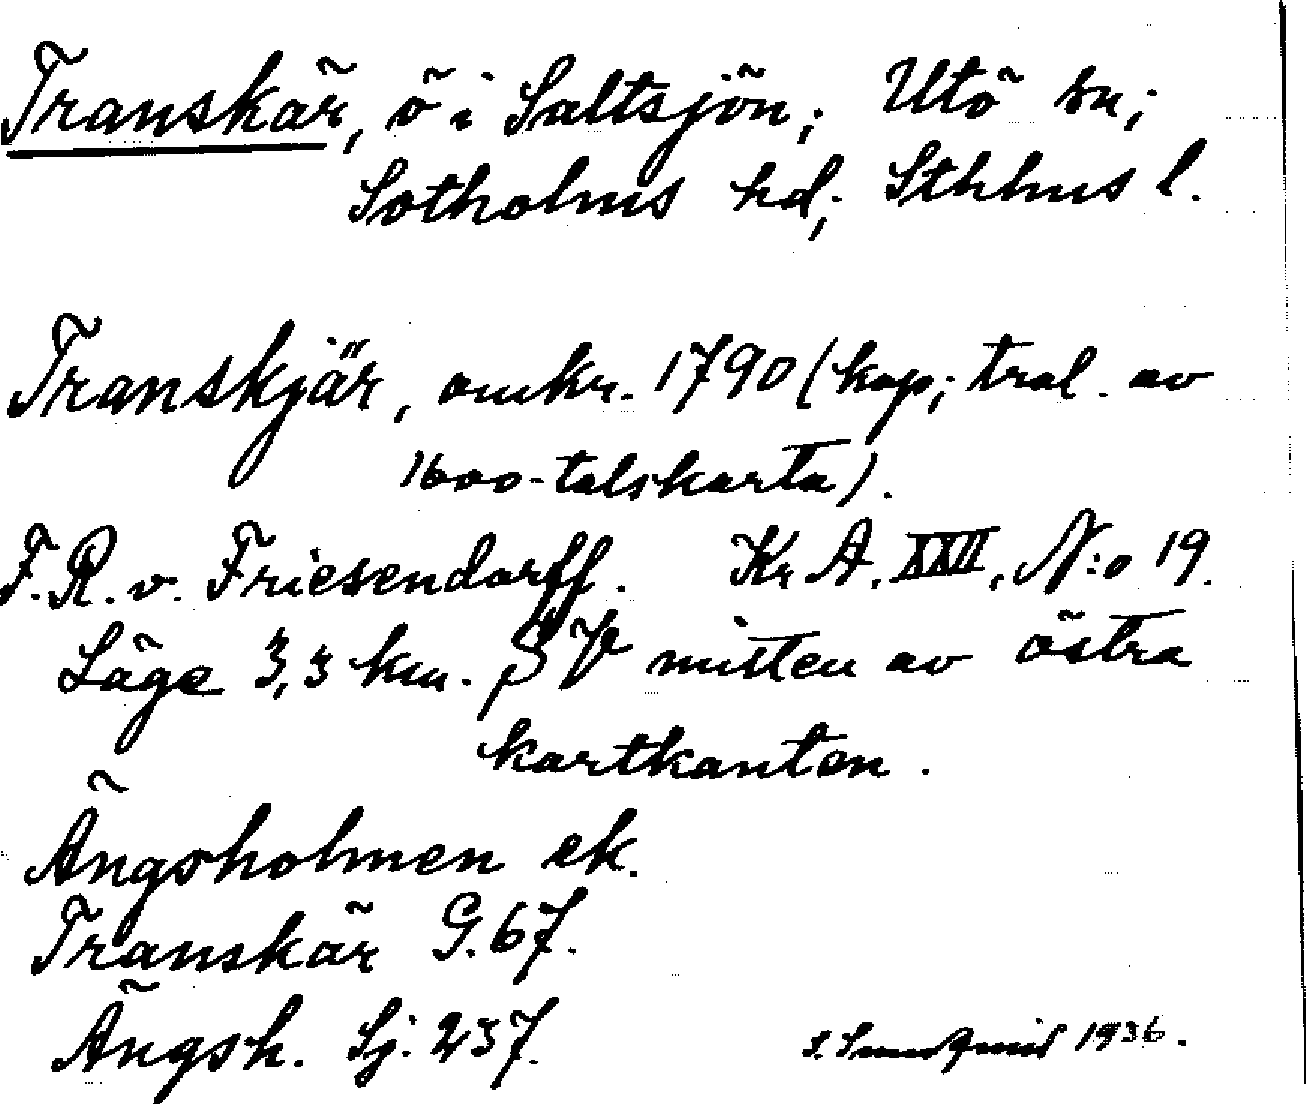 Transkär, ö i Saltsjön; Utö sn;
Sotholms hd; Sthlms l.
Transkjär, omkr. 1790 (kop; trol. av
1600-talskarta).
F. R. v. Friesendorff. Kr A. XXII, N:o 19.
Läge 3,3 km. SV mitten av östra
kartkanten.
Ängsholmen ek.
Transkär G. 67.
Ängsh. Sj. 237.
1936.